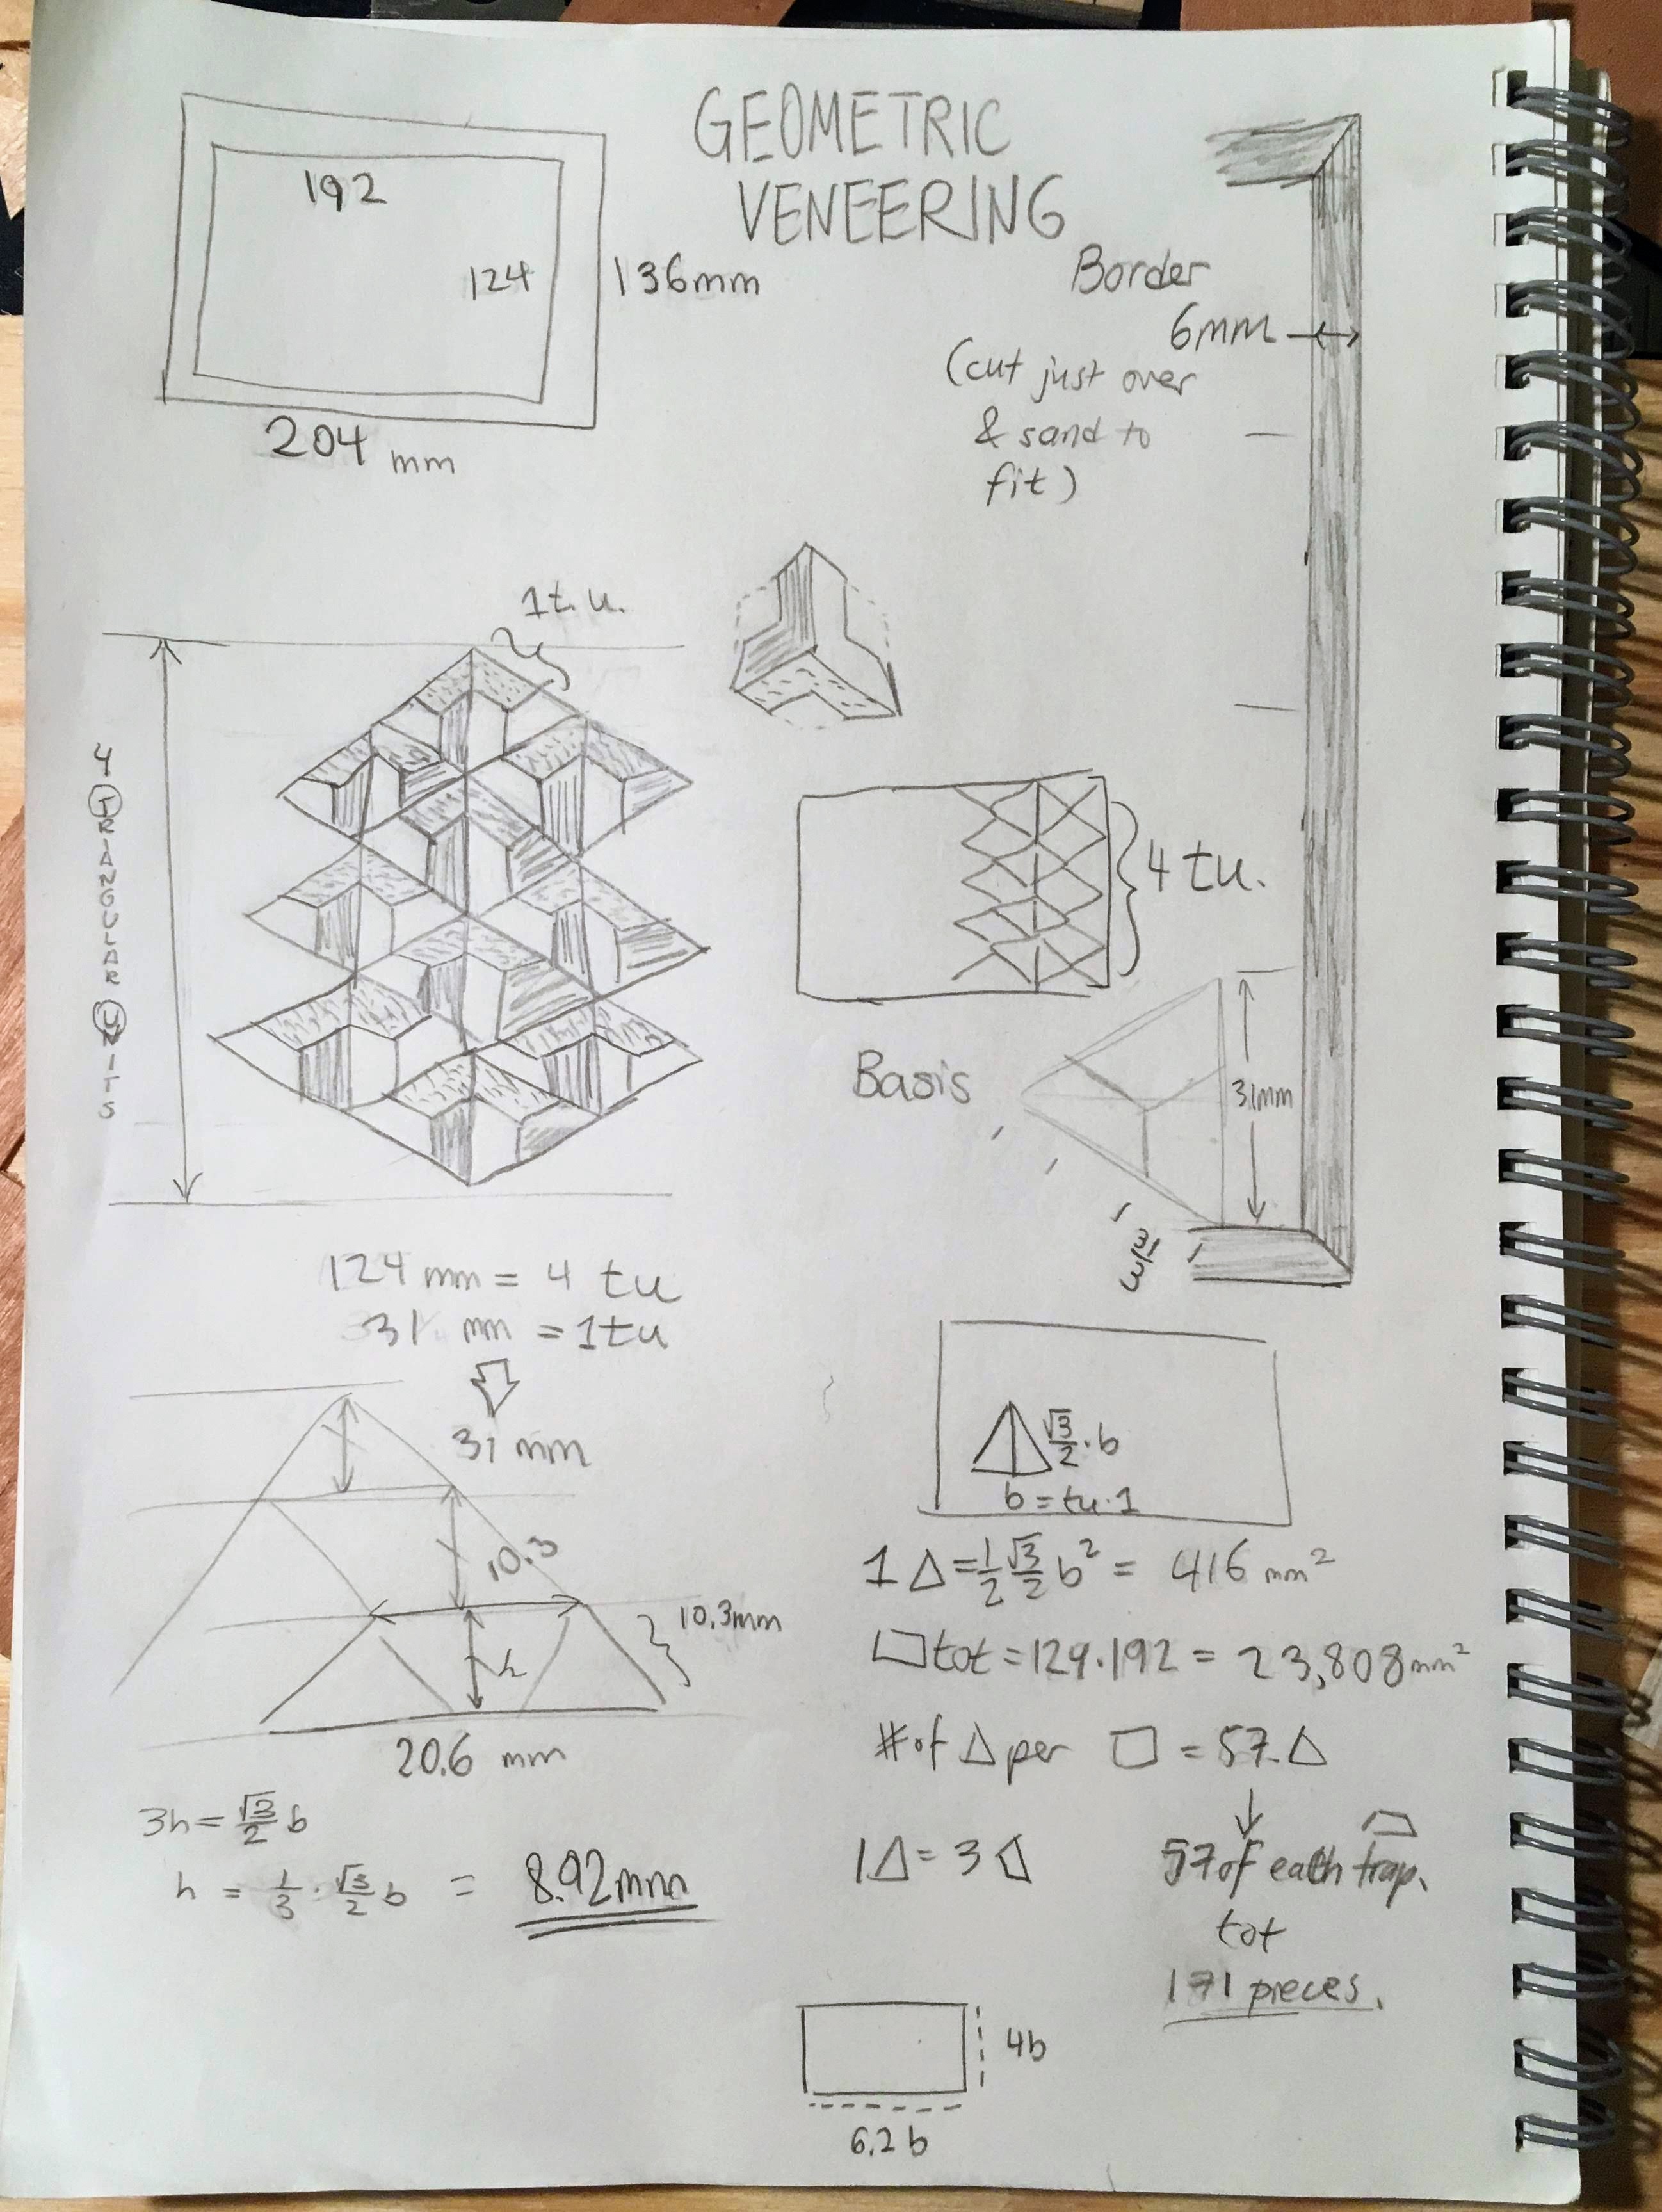 GEOMETRIC
VENEERING
192
124
136mm
204 mm
Border
6mm
(cut just over
& sand to
fit)
1t.u.
4 TRIANGULAR UNITS
4 tu.
Basis
31mm
124 mm = 4 tu
31 mm = 1tu
31 mm
10.3
10.3mm
h
20.6 mm
3h = √3/2 b
h = 1/3 · √3/2 b = 8.92mm
√3/2 · b
b = tu·1
1 △ = 1/2 √3/2 b² = 416 mm²
▱ tot = 124·192 = 23,808mm²
# of △ per □ = 57 △
1△ = 3
57 of each trap.
tot
171 pieces.
4b
6.2 b